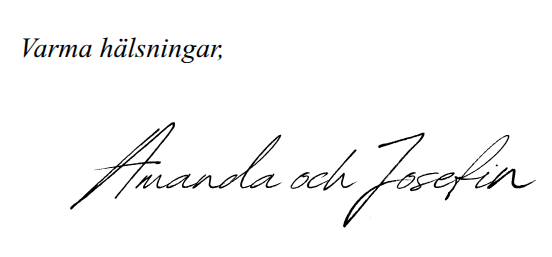 Varma hälsningar,
Amanda och Josefin